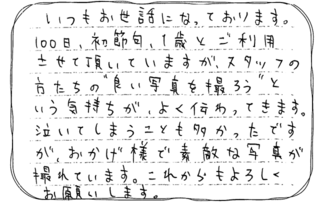 いつもお世話になっております。
100日、初節句、1歳とご利用
させて頂いていますが、スタッフの
方たちの"良い写真を撮ろう"と
いう気持ちが、よく伝わってきます。
泣いてしまうことも多かったです
が、おかげ様で素敵な写真が
撮れています。これからもよろしく
お願いします。